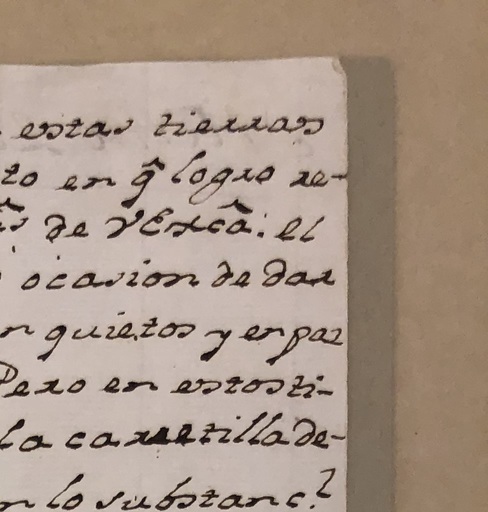 estas tierras
to en q̃ logro re-
de VExcã. el
ocasion de dar
n quietos y en paz
Pero en estos ti-
la carretilla de-
n lo substanc.l